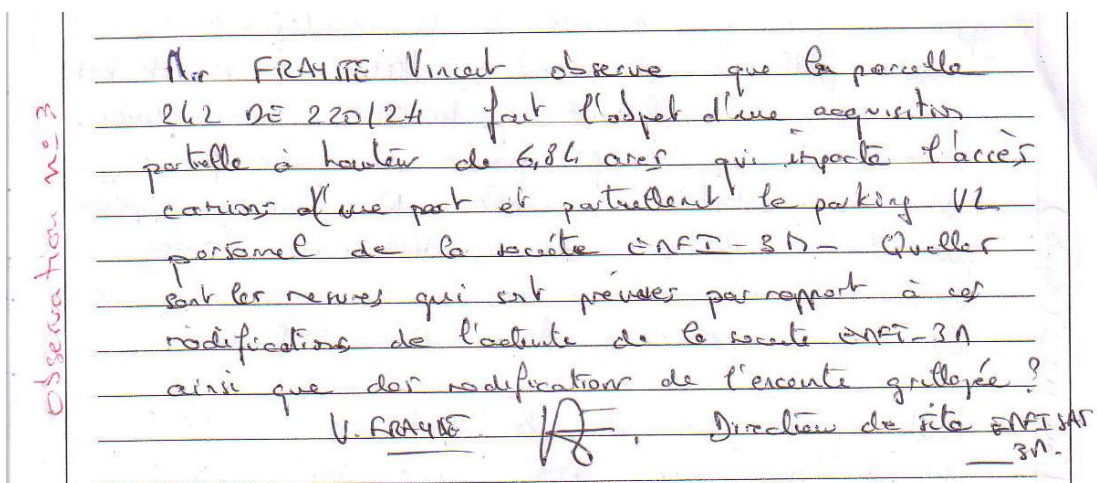 observation n° 3
Mr FRAYSSE Vincent observe que la parcelle
242 DE 220/24 fait l'objet d'une acquisition
partielle à hauteur de 6,84 ares qui impacte l'accès
camions d'une part et partiellement le parking VL
personnel de la société - 3M - Quelles
sont les mesures qui sont prévues par rapport à ces
modifications de l'activité de la société - 3M
ainsi que des modifications de l'enceinte grillagée ?
V. . Direction de site
3M.